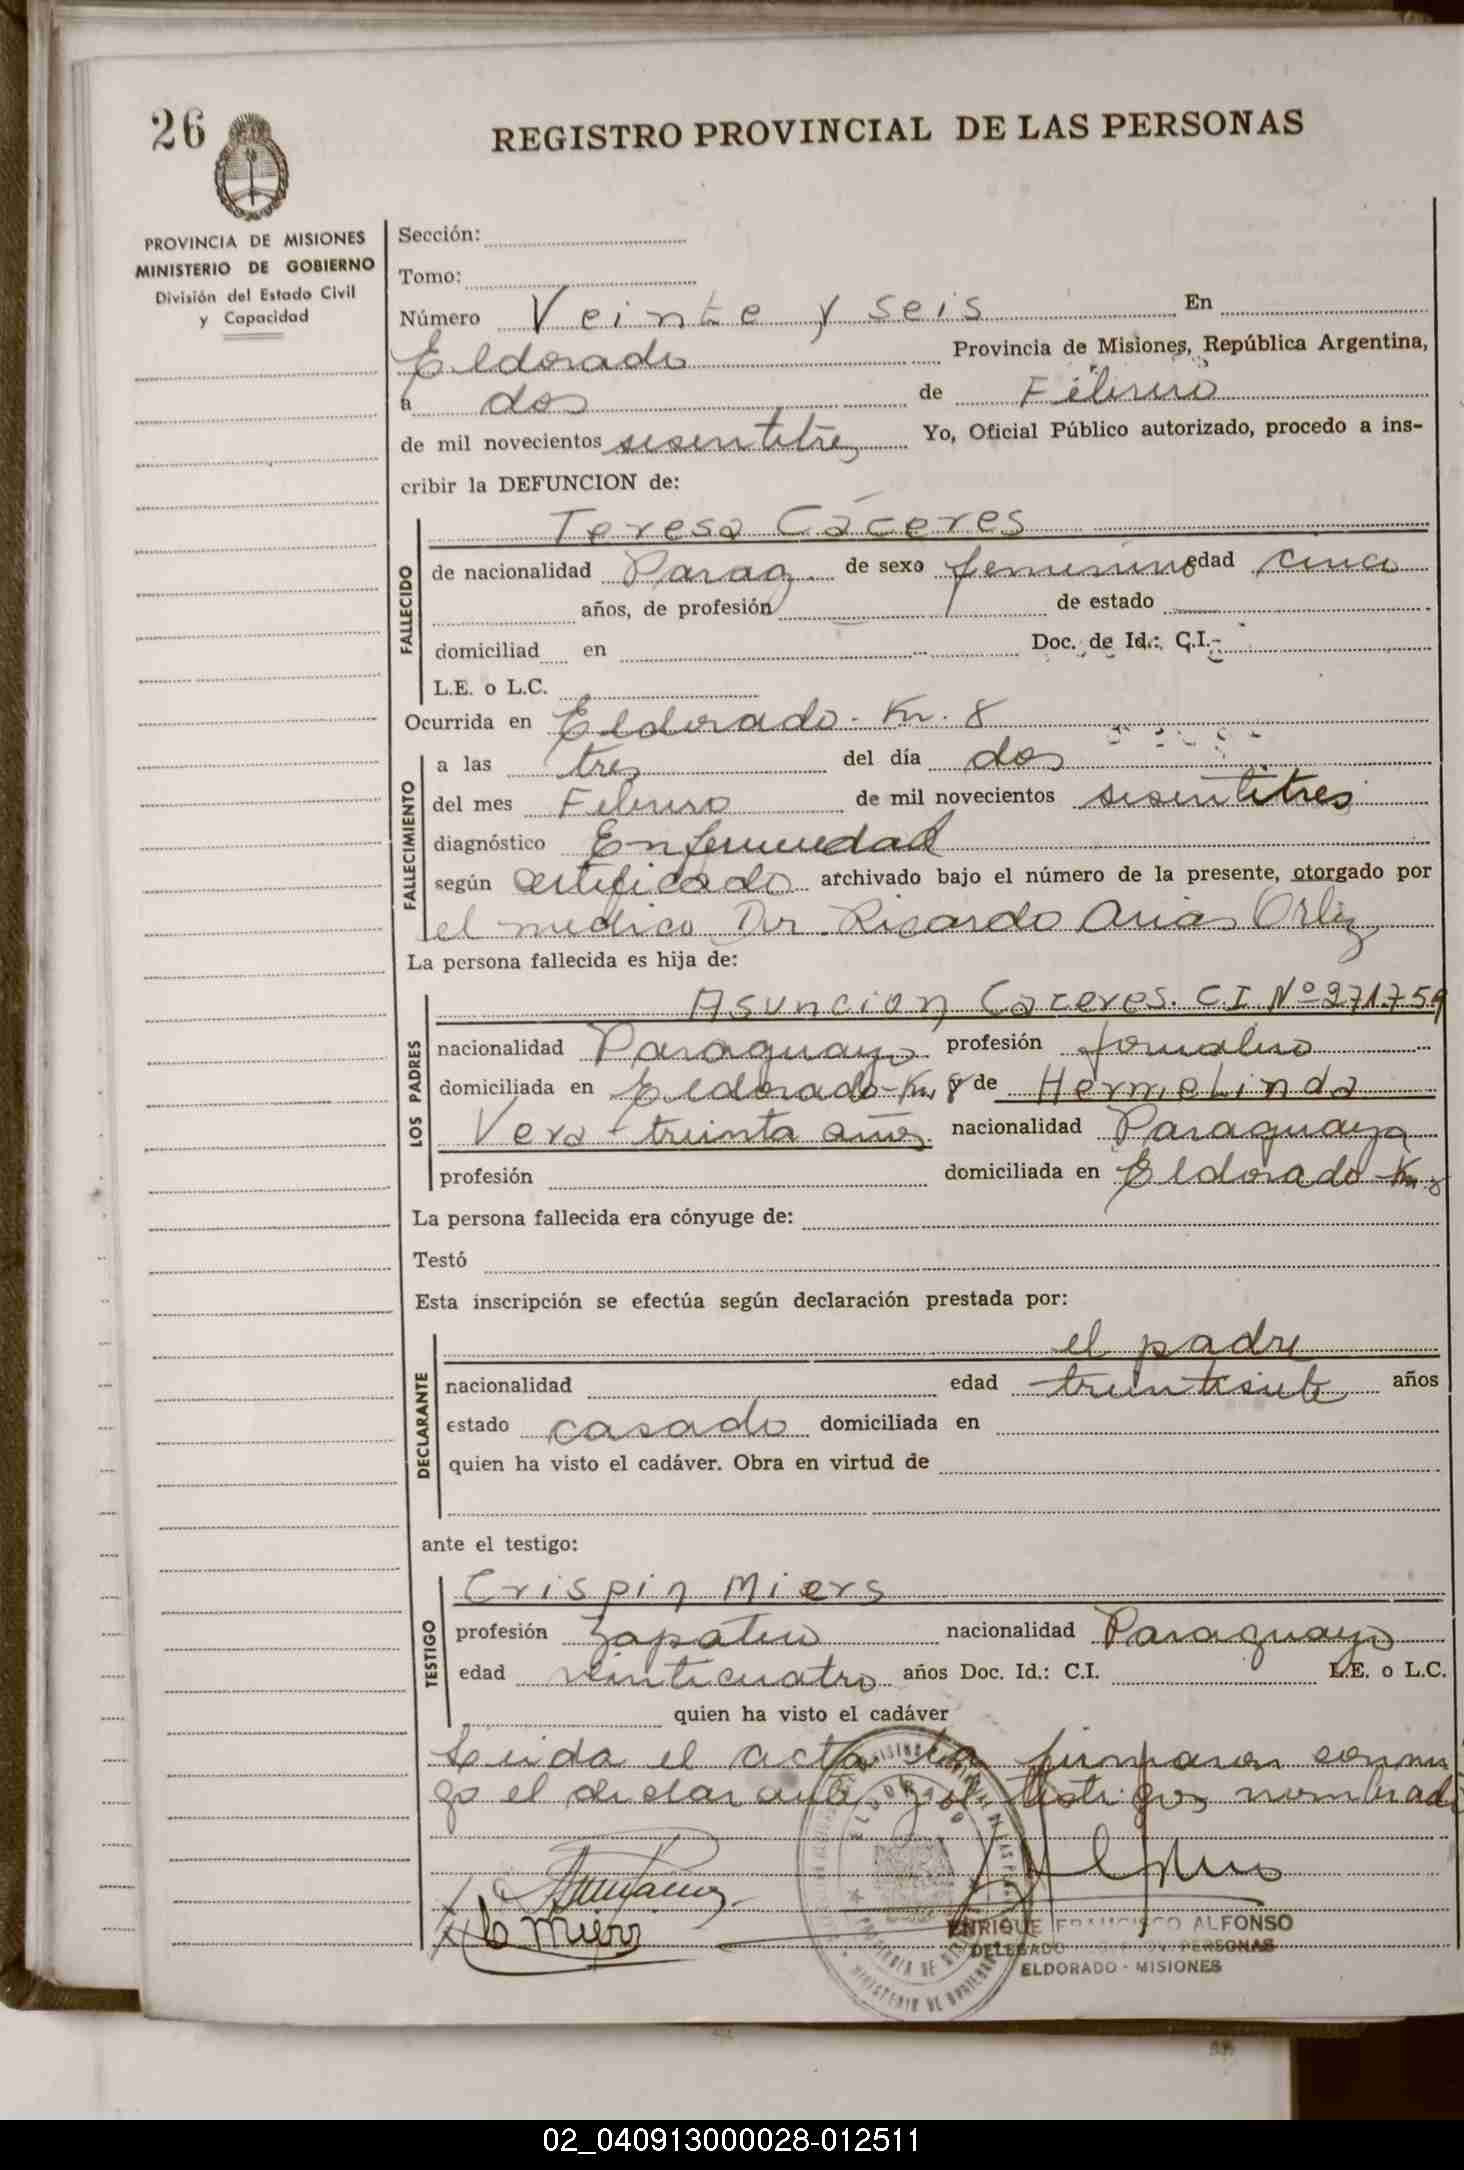 26
REGISTRO PROVINCIAL DE LAS PERSONAS
PROVINCIA DE MISIONES
MINISTERIO DE GOBIERNO
División del Estado Civil
y Capacidad
Sección:
Tomo:
Número Veinte y seis En
Eldorado Provincia de Misiones, República Argentina,
a dos de Febrero
de mil novecientos sesentitres Yo, Oficial Público autorizado, procedo a ins-
cribir la DEFUNCION de:
FALLECIDO
Teresa Cáceres
de nacionalidad Parag. de sexo femenino edad cinco
años, de profesión de estado
domiciliad en Doc. de Id.: C.I.-
L.E. o L.C.
Ocurrida en Eldorado. Km. 8
FALLECIMIENTO
a las tres del día dos
del mes Febrero de mil novecientos sesentitres
diagnóstico Enfermedad
según certificado archivado bajo el número de la presente, otorgado por
el medico Dr. Ricardo Arias Ortiz
La persona fallecida es hija de:
LOS PADRES
Asuncion Caceres. C I Nº 271759
nacionalidad Paraguayo profesión Jornalero
domiciliada en Eldorado-Km 8 y de Hermelinda
Vera - treinta años. nacionalidad Paraguaya
profesión domiciliada en Eldorado-Km 8
La persona fallecida era cónyuge de:
Testó
Esta inscripción se efectúa según declaración prestada por:
DECLARANTE
el padre
nacionalidad edad treintisiete años
estado casado domiciliada en
quien ha visto el cadáver. Obra en virtud de
ante el testigo:
TESTIGO
Crispin Miers
profesión Zapatero nacionalidad Paraguayo
edad veinticuatro años Doc. Id.: C.I. L.E. o L.C.
quien ha visto el cadáver
Leida el acta la firmaron conmi
go el declarante y el testigos nombrado
C Miers
ELDORADO
ENRIQUE FRANCISCO ALFONSO
DELEGADO PERSONAS
ELDORADO - MISIONES
02_040913000028-012511